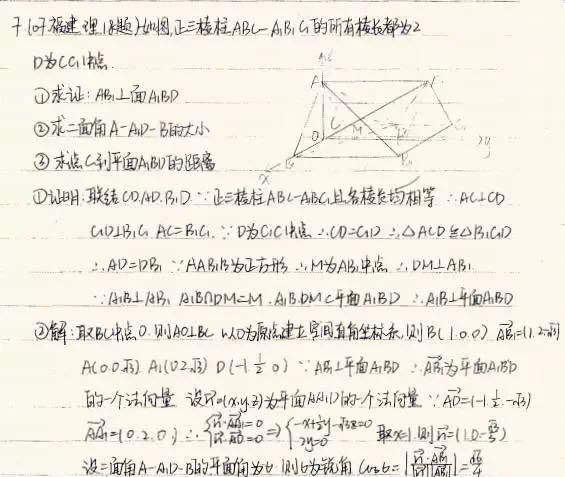 7.(07.福建理18题)如图,正三棱柱ABC-A₁B₁C₁的所有棱长都为2
D为CC₁中点.
①求证:AB₁⊥面A₁BD
②求二面角A-A₁D-B的大小
③求点C到平面A₁BD的距离
A
O
C
M
B₁
C₁
x
y
①证明:联结CD.AD.B₁D ∵正三棱柱ABC-A₁B₁C₁且各棱长均相等 ∴AC⊥CD
C₁D⊥B₁C₁ AC=B₁C₁. ∵D为C₁C中点 ∴CD=C₁D ∴△ACD≌△B₁C₁D
∴AD=DB₁ ∵AA₁B₁B为正方形 ∴M为AB₁中点 ∴DM⊥AB₁
∵A₁B⊥AB₁ A₁B∩DM=M. A₁B.DM⊂平面A₁BD ∴AB₁⊥平面A₁BD
②解:取BC中点O.则AO⊥BC 以O为原点建立空间直角坐标系,则B(1.0.0) AB₁=(1.2.-√3)
A(0.0.√3) A₁(0.2.√3) D(-1.1/2.0) ∵AB₁⊥平面A₁BD ∴AB₁为平面A₁BD
的一个法向量 设n=(x.y.z)为平面AA₁D的一个法向量 ∵AD=(-1.1/2.-√3)
AA₁=(0.2.0) ∴{n·AA₁=0 n·AD=0 ⇒{-x+1/2y-√3z=0 2y=0 取x=1.则n=(1.0.-√3/3)
设二面角A-A₁D-B的平面角为θ.则θ为锐角 cosθ=|n·AB₁/|n||AB₁||=√6/4